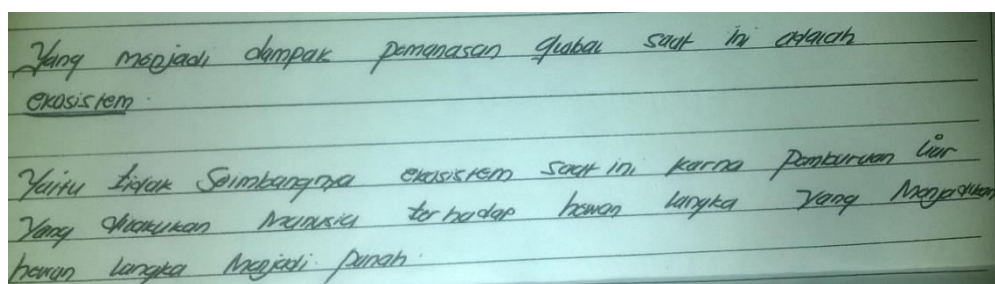 Yang menjadi dampak pemanasan global saat ini adalah
ekosistem.
Yaitu tidak Seimbangnya ekosistem saat ini karna Pemburuan liar
Yang dilakukan Manusia terhadap hewan langka Yang Menjadikan
hewan langka Menjadi punah.